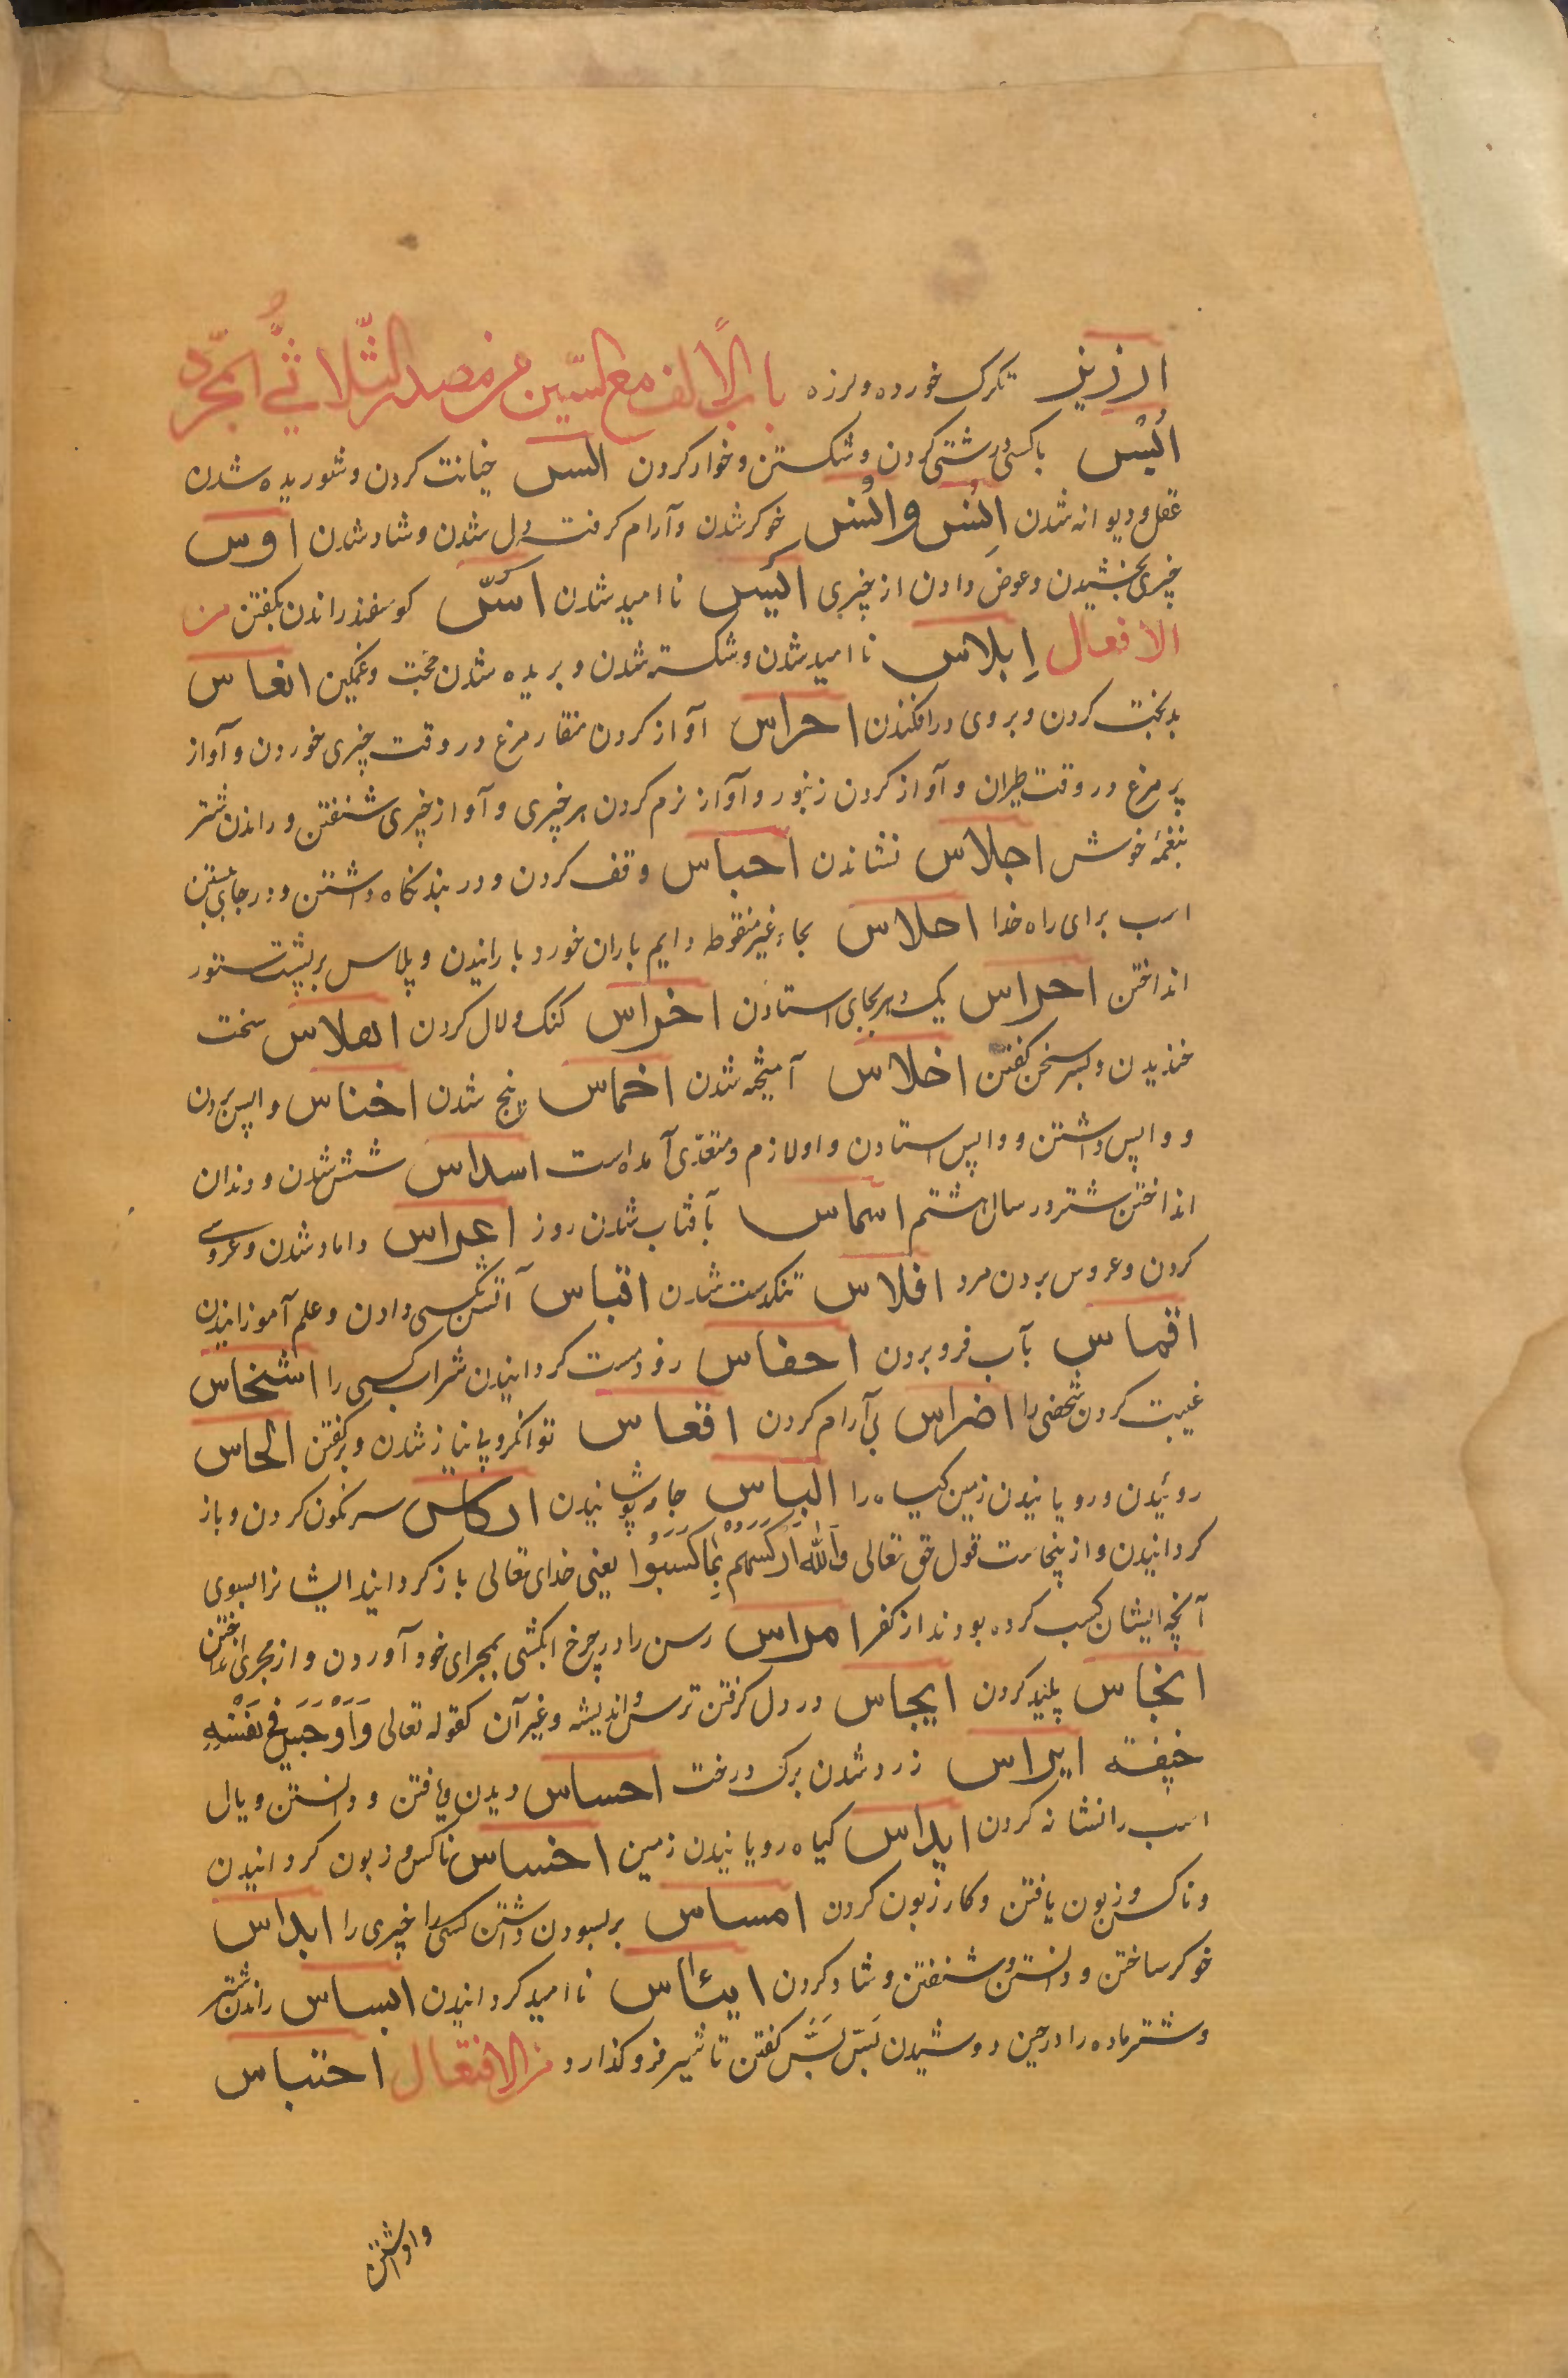 ارزیز تکرک خورده و لرزه باب الألف مع السّین من مصدر الثّلاثیُّ المجرّد
اَبْس باکسی درشتی کردن و شکستن و خوار کردن الس خیانت کردن و شوریده شدن
عقل و دیوانه شدن اِنْس و اُنْس خوکر شدن و آرام کرفت دل شدن و شاد شدن اوس
چیزی بخشیدن و عوض دادن از چیزی ایَس ناامید شدن اسّ کوسفند راندن بکفتن من
الافعال اِبلاس ناامید شدن و شکسته شدن و بریده شدن حجّت و غمکین اتعاس
بدبخت کردن و بروی درافکندن احراس آواز کردن منقار مرغ در وقت چیزی خوردن و آواز
پر مرغ در وقت طیران و آواز کردن زنبور و آواز نرم کردن هر چیزی و آواز چیزی شنفتن و راندن شتر
بنغمهٔ خوش اجلاس نشاندن احباس وقف کردن و در بند نکاه داشتن و در جای بستن
اسب برای راه خدا احلاس بحاء غیر منقوطه دایم باران خورد بارانیدن و پلاس بر پشت ستور
انداختن احراس یک دهر بجای استادن اخراس کنک و لال کردن اهلاس سخت
خندیدن و بسر سخن کفتن اخلاس آمیخته شدن اخماس پنج شدن اخناس واپس بردن
و واپس داشتن و واپس استادن و اولازم و متعدّی آمده است اسداس شش شدن و دندان
انداختن شتر در سال هشتم اشماس بآفتاب شدن روز اعراس داماد شدن و عروسی
کردن و عروس بردن مرد افلاس تنکدست شدن اقباس آتش بکسی دادن و علم آموزانیدن
اقماس بآب فرو بردن احفاس زود مست کردانیدن شراب کسی را اشخاس
غیبت کردن شخصی را اضراس بی آرام کردن اقعاس توانکر و بی نیاز شدن و برکفتن الحاس
روئیدن و رویانیدن زمین کیاه را الباس جامه پوشانیدن ارکاس سرنکون کردن و باز
کردانیدن و از ینجاست قول حق تعالی وَاللّٰهُ اَرْکَسَهُمْ بِمَا کَسَبُوْا یعنی خدای تعالی باز کردانید ایشانرا بسوی
آنچه ایشان کسب کرده بودند از کفر امراس رسن را در چرخ ابکشی بمجرای خود آوردن و از مجری انداختن
انجاس پلید کردن ایجاس در دل کرفتن ترس و اندیشه و غیر آن کقوله تعالی وَاَوْجَسَ فِی نَفْسِهِ
خیفة ایراس زرد شدن برک درخت احساس دیدن و یافتن و دانستن و یال
اسب را نشانه کردن ایداس کیاه رویانیدن زمین اخساس ناکس و زبون کردانیدن
و ناکس و زبون یافتن و کار زبون کردن امساس بربسودن داشتن کسی را چیزی را ایداس
خوکر ساختن و دانستن و شنفتن و شاد کردن ایئاس ناامید کردانیدن ابساس راندن شتر
و شتر ماده را در حین دوشیدن بَسّ بَسّ کفتن تا شیر فرو کذارد من الافتعال احتباس
واداشتن